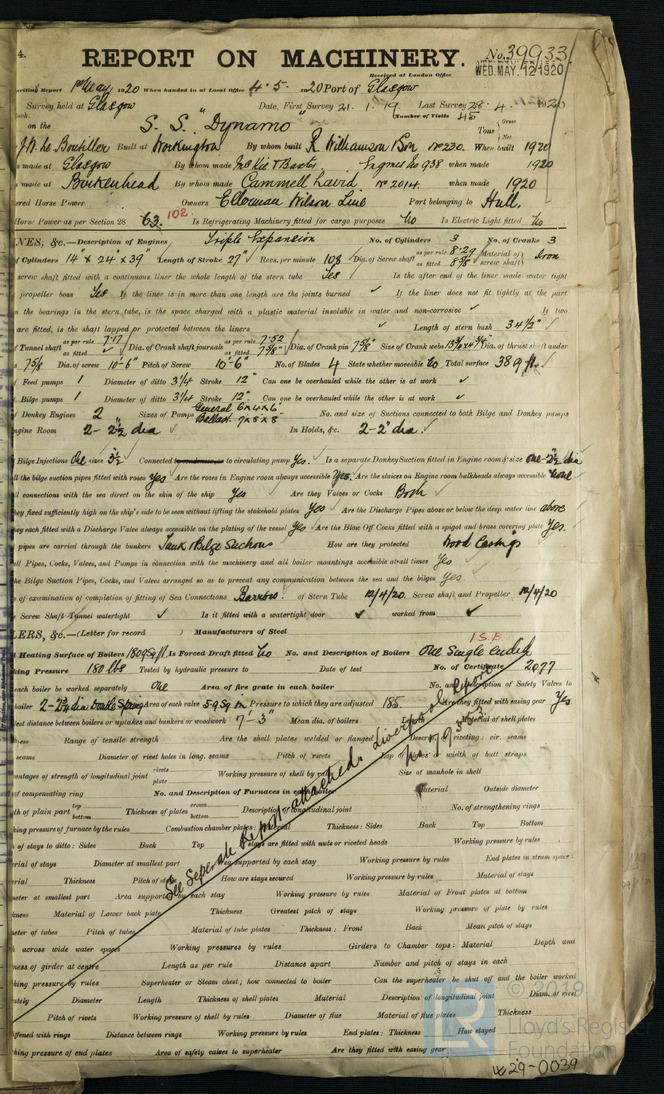 4. REPORT ON MACHINERY. No. 39933
Received at London Office WED. MAY. 12 1920
writing Report 1st May 1920 When handed in at Local Office 4. 5. 1920 Port of Glasgow
Survey held at Glasgow Date, First Survey 21. 1. 19 Last Survey 28. 4. 1920
Number of Visits 45
on the S. S. "Dynamo" Tons Gross Net
Built at Workington By whom built R. Williamson & Son No 230. When built 1920
made at Glasgow By whom made McKie & Baxter Engines No 938 when made 1920
made at Birkenhead By whom made Cammell Laird No 2014. when made 1920
Horse Power Owners Ellerman Wilson Line Port belonging to Hull.
Horse Power as per Section 28 63. 102. Is Refrigerating Machinery fitted for cargo purposes No Is Electric Light fitted No
NES, &c.—Description of Engines Triple Expansion No. of Cylinders 3 No. of Cranks 3
Cylinders 14" × 24 × 39" Length of Stroke 27" Revs. per minute 108 Dia. of Screw shaft as per rule 8.29 as fitted 8 5/8" Material of screw shaft Iron
screw shaft fitted with a continuous liner the whole length of the stern tube Yes Is the after end of the liner made water tight
propeller boss Yes If the liner is in more than one length are the joints burned ✓ If the liner does not fit tightly at the part
the bearings in the stern tube, is the space charged with a plastic material insoluble in water and non-corrosive ✓ If two
are fitted, is the shaft lapped or protected between the liners ✓ Length of stern bush 34 1/2"
of Tunnel shaft as per rule 7.17 as fitted ✓ Dia. of Crank shaft journals as per rule 7.52 as fitted 7 5/8" Dia. of Crank pin 7 5/8" Size of Crank webs Dia. of thrust shaft under
7 5/8 Dia. of screw 10'-6" Pitch of Screw 10'-6" No. of Blades 4 State whether moveable No Total surface 38 sq ft.
Feed pumps 1 Diameter of ditto 3 1/4 Stroke 12" Can one be overhauled while the other is at work ✓
Bilge pumps 1 Diameter of ditto 3 1/4 Stroke 12" Can one be overhauled while the other is at work ✓
of Donkey Engines 2 Sizes of Pumps General 6×4×6 Ballast. 7×8×8 No. and size of Suctions connected to both Bilge and Donkey pumps
Engine Room 2 - 2 1/2" dia ✓ In Holds, &c. 2 - 2" dia. ✓
Bilge Injections One sizes 3 1/2 Connected to circulating pump Yes. Is a separate Donkey Suction fitted in Engine room & size one - 2 1/2" dia
the bilge suction pipes fitted with roses Yes Are the roses in Engine room always accessible Yes. Are the sluices on Engine room bulkheads always accessible None
all connections with the sea direct on the skin of the ship Yes Are they Valves or Cocks Both
they fixed sufficiently high on the ship's side to be seen without lifting the stokehold plates Yes Are the Discharge Pipes above or below the deep water line above
they each fitted with a Discharge Valve always accessible on the plating of the vessel Yes Are the Blow Off Cocks fitted with a spigot and brass covering plate Yes.
pipes are carried through the bunkers Tank & Bilge Suctions How are they protected Wood Casings
all Pipes, Cocks, Valves, and Pumps in connection with the machinery and all boiler mountings accessible at all times Yes
the Bilge Suction Pipes, Cocks, and Valves arranged so as to prevent any communication between the sea and the bilges Yes
of examination of completion of fitting of Sea Connections Barrow! of Stern Tube 12/4/20 Screw shaft and Propeller 12/4/20
Screw Shaft Tunnel watertight ✓ Is it fitted with a watertight door ✓ worked from ✓
LERS, &c.—(Letter for record ) Manufacturers of Steel
1 S.E.
Heating Surface of Boilers 1809 sq ft. Is Forced Draft fitted No No. and Description of Boilers One Single ended
king Pressure 180 lbs Tested by hydraulic pressure to Date of test No. of Certificate 2077
each boiler be worked separately One Area of fire grate in each boiler No. and Description of Safety Valves to
boiler Double Spring Area of each valve 5.9 Sq in. Pressure to which they are adjusted 185 Are they fitted with easing gear Yes
distance between boilers or uptakes and bunkers or woodwork 7'-3" Mean dia. of boilers Length Material of shell plates
Range of tensile strength Are the shell plates welded or flanged Descrip. of riveting: cir. seams
seams Diameter of rivet holes in long. seams Pitch of rivets Lap of plates or width of butt straps
centages of strength of longitudinal joint rivets plate Working pressure of shell by rules Size of manhole in shell
of compensating ring No. and Description of Furnaces in each boiler Material Outside diameter
of plain part top bottom Thickness of plates crown bottom Description of longitudinal joint No. of strengthening rings
king pressure of furnace by the rules Combustion chamber plates: Material Thickness: Sides Back Top Bottom
of stays to ditto: Sides Back Top stays are fitted with nuts or riveted heads Working pressure by rules
rial of stays Diameter at smallest part Area supported by each stay Working pressure by rules End plates in steam space:
rial Thickness Pitch of stays How are stays secured Working pressure by rules Material of stays
meter at smallest part Area supported by each stay Working pressure by rules Material of Front plates at bottom
kness Material of Lower back plate Thickness Greatest pitch of stays Working pressure of plate by rules
meter of tubes Pitch of tubes Material of tube plates Thickness: Front Back Mean pitch of stays
across wide water spaces Working pressures by rules Girders to Chamber tops: Material Depth and
ness of girder at centre Length as per rule Distance apart Number and pitch of stays in each
king pressure by rules Superheater or Steam chest; how connected to boiler Can the superheater be shut off and the boiler worked
ately Diameter Length Thickness of shell plates Material Description of longitudinal joint Diam. of rivet
Pitch of rivets Working pressure of shell by rules Diameter of flue Material of flue plates Thickness
ffened with rings Distance between rings Working pressure by rules End plates: Thickness How stayed
king pressure of end plates Area of safety valves to superheater Are they fitted with easing gear
See Seperate Report attached. Liverpool Report
© 2019
Lloyd's Register
Foundation
W29-0039